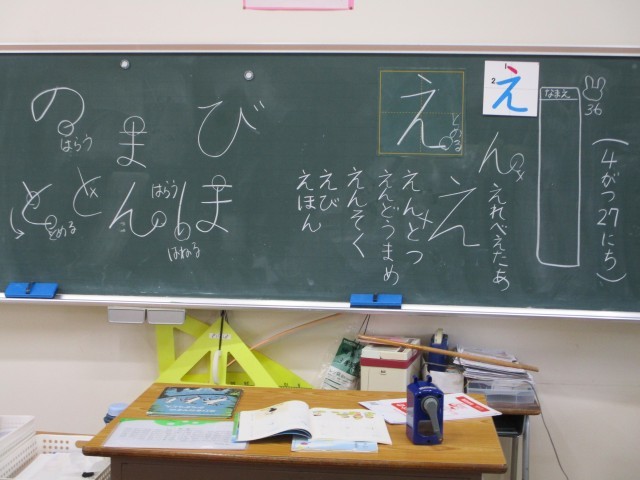 (4がつ27にち)
36
なまえ
1
2
え
えれべえたあ
ん
え
え
とめる
えんとつ
えんどうまめ
えんそく
えび
えほん
び
ま
の
はらう
ほ
はねる
ん
はらう
と
と
とめる